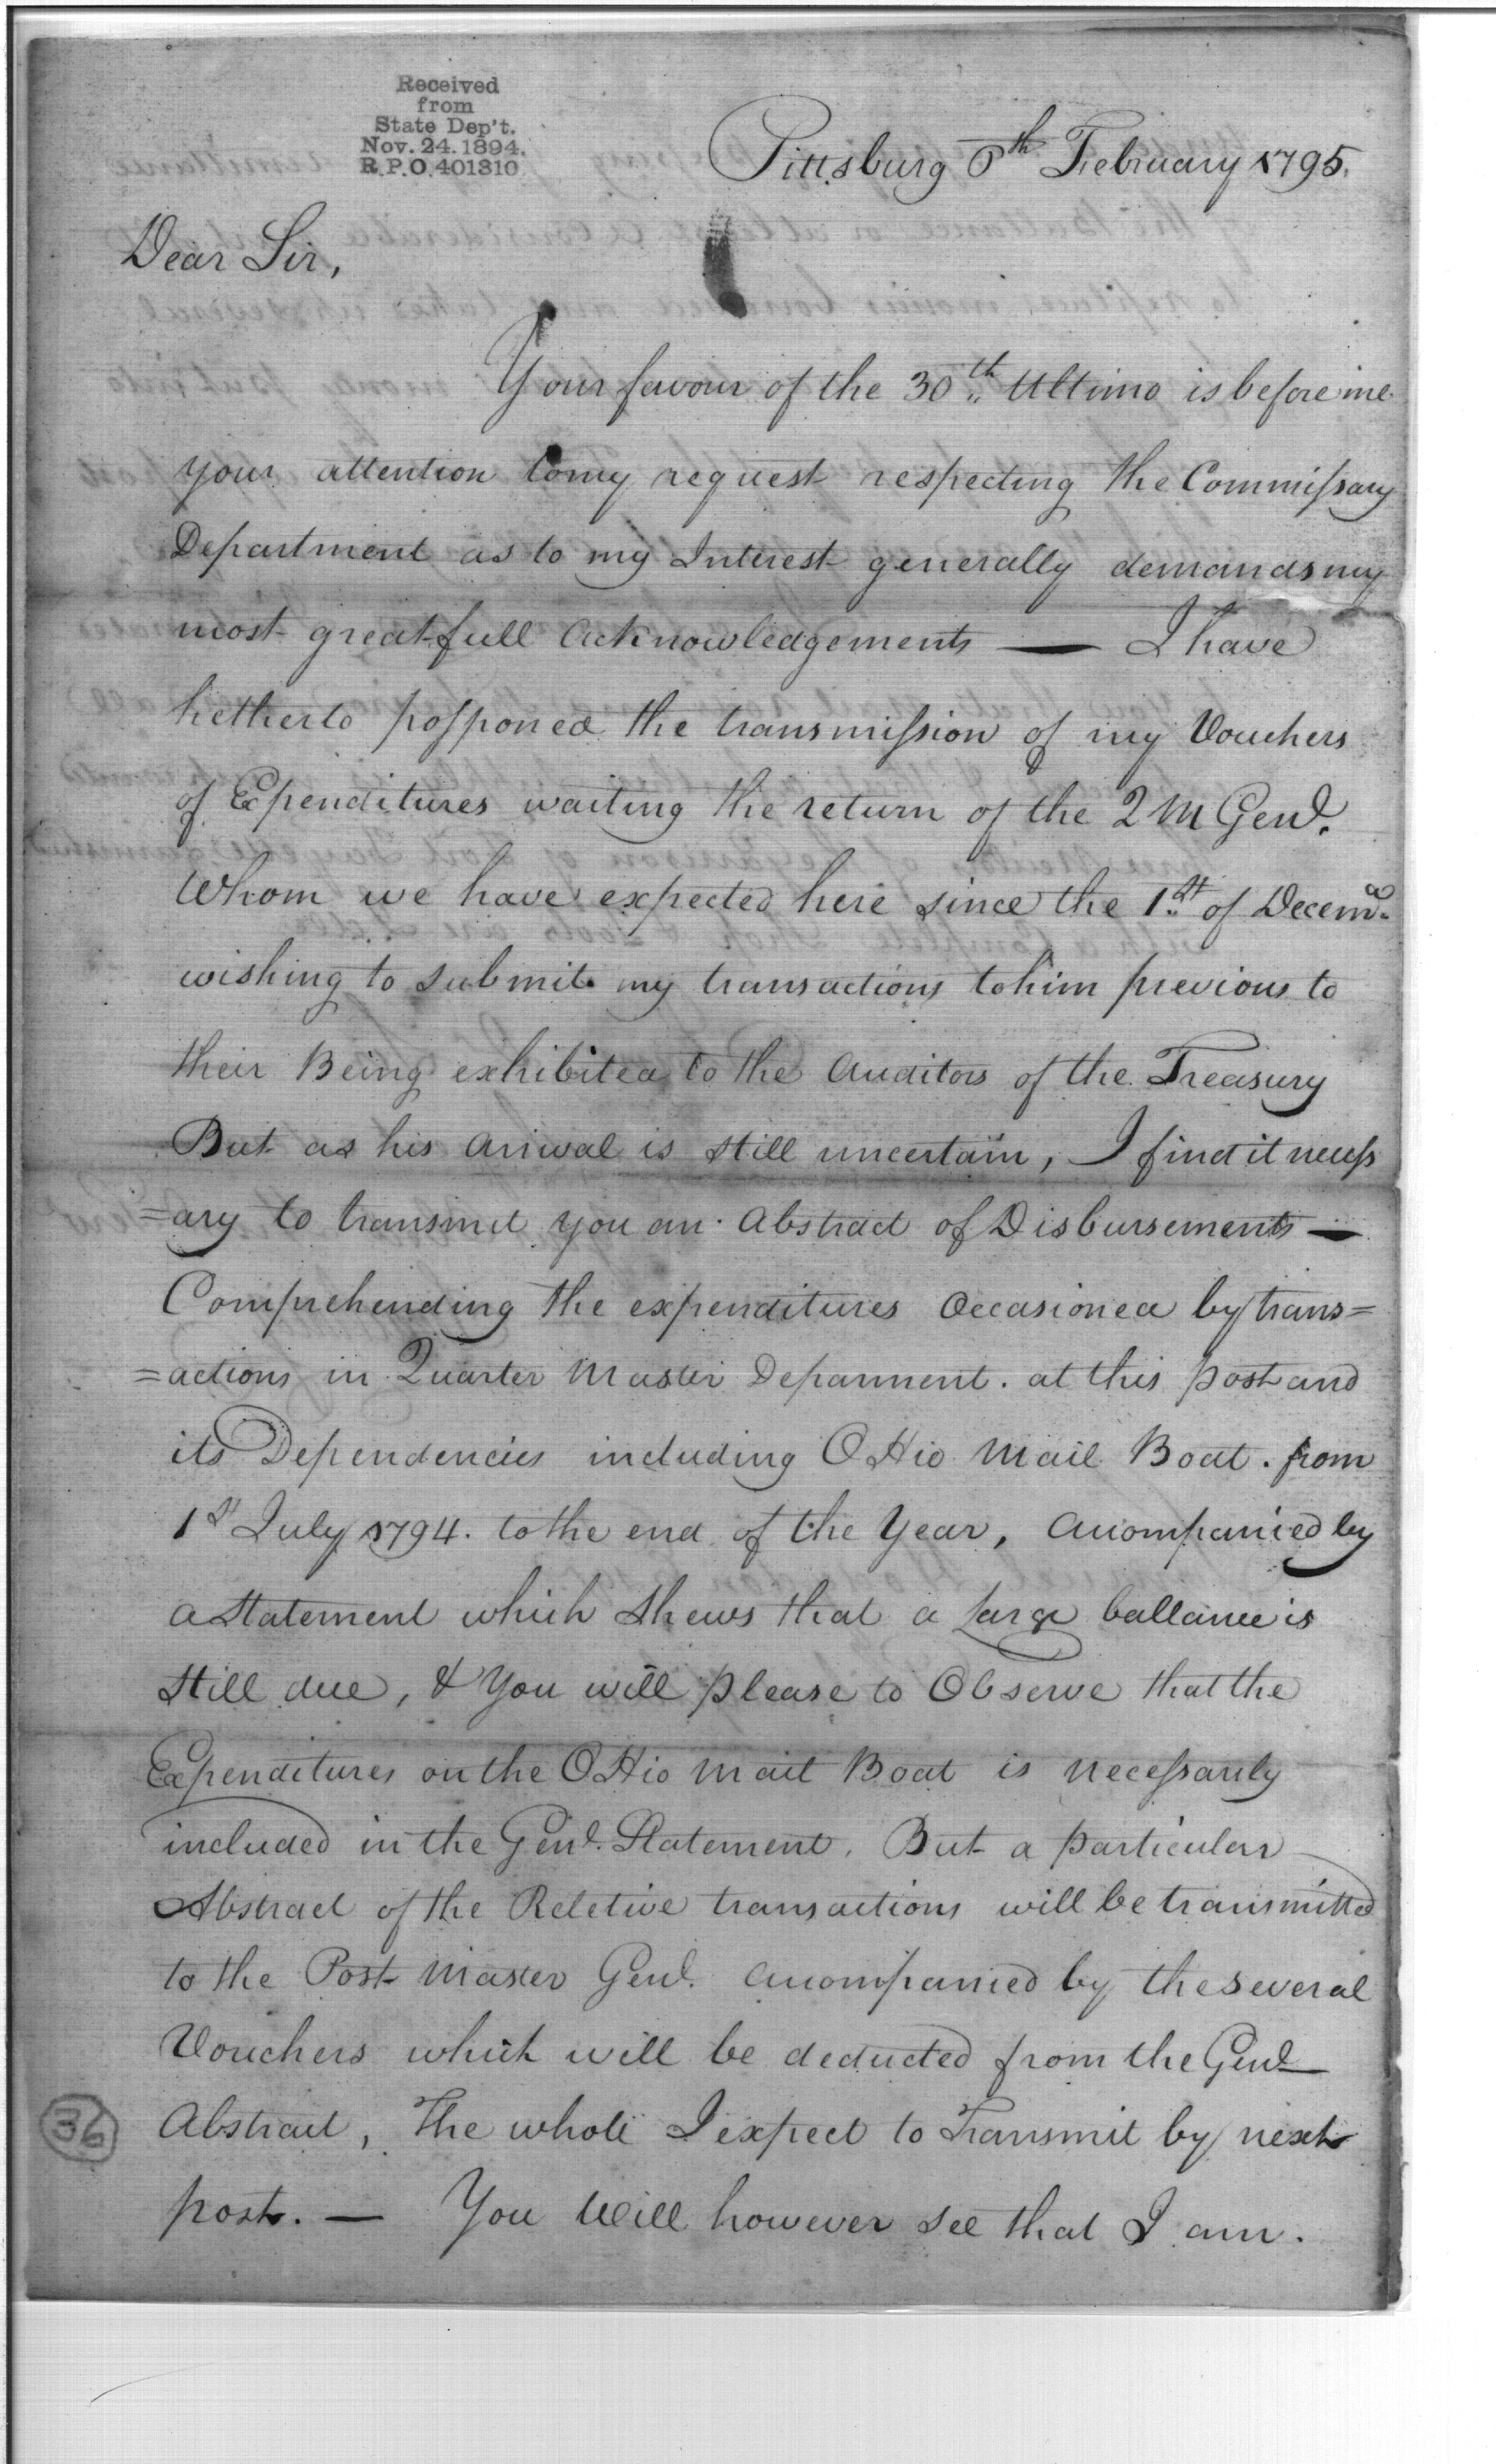 Received
from
State Dep't.
Nov. 24. 1894.
R.P.O. 401310
Pittsburg 6th February 1795.
Dear Sir,
Your favour of the 30th Ultimo is before me
your attention to my request respecting the Commissary
Department as to my Interest generally demands my
most greatfull acknowledgements — I have
hetherto posponed the transmission of my Vouchers
of Expenditures waiting the return of the Q M Genl.
Whom we have expected here since the 1st of Decemr.
wishing to submit my transactions to him previous to
their Being exhibited to the Auditors of the Treasury
But as his arival is still uncertain, I find it necess
=ary to transmit you an Abstract of Disbursements —
Comprehending the expenditures Occasioned by trans=
=actions in Quarter Master Deparment. at this post and
its Dependencies including OHio Mail Boat. from
1st July 1794. to the end of the Year, accompanied by
a Statement which shews that a large ballance is
still due, & You will please to Observe that the
Expenditures on the OHio Mail Boat is necessarily
included in the Genl. Statement. But a particular
Abstract of the Reletive transactions will be transmitted
to the Post Master Genl. accompanied by the several
Vouchers which will be deducted from the Genl
Abstract, The whole I expect to Transmit by next
post. — You Will however see that I am.
36